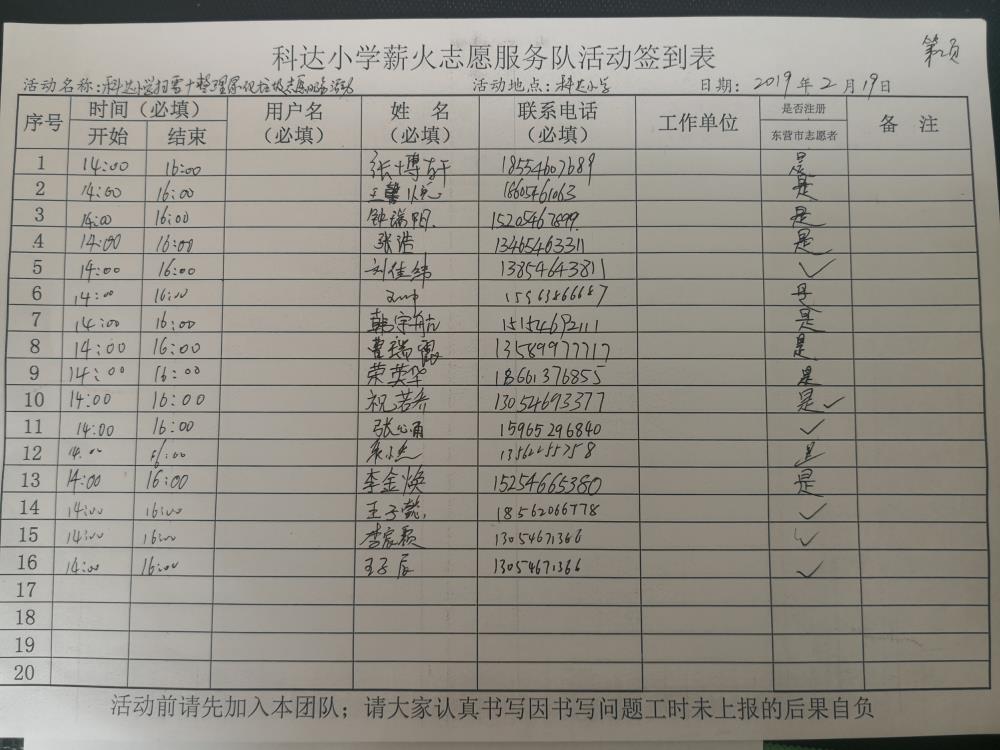 第2页
科达小学薪火志愿服务队活动签到表
活动名称:科达小学扫雪+整理 志愿服务活动 活动地点:科达小学 日期:2019年2月19日
序号 时间(必填) 用户名(必填) 姓 名(必填) 联系电话(必填) 工作单位 是否注册 备 注
开始 结束 东营市志愿者
1 14:00 16:00 张博轩 18554607689 是
2 14:00 16:00 王馨悦 18605461063 是
3 14:00 16:00 钟瑞阳 15205467899 是
4 14:00 16:00 张浩 13465463311 是✓
5 14:00 16:00 刘佳纬 13854643811 ✓
6 14:00 16:00 是
7 14:00 16:00 韩宇航 15154692111 是
8 14:00 16:00 曹瑞 13589977717 是
9 14:00 16:00 荣英华 18661376855 是
10 14:00 16:00 祝若乔 13054693377 是✓
11 14:00 16:00 张心甬 15965296840 ✓
12 14:00 16:00 是
13 14:00 16:00 李金焕 15254665380 是
14 14:00 16:00 王子懿 18562066778 ✓
15 14:00 16:00 李家颖 13054671366 ✓
16 14:00 16:00 王子辰 13054671366 ✓
17
18
19
20
活动前请先加入本团队;请大家认真书写因书写问题工时未上报的后果自负